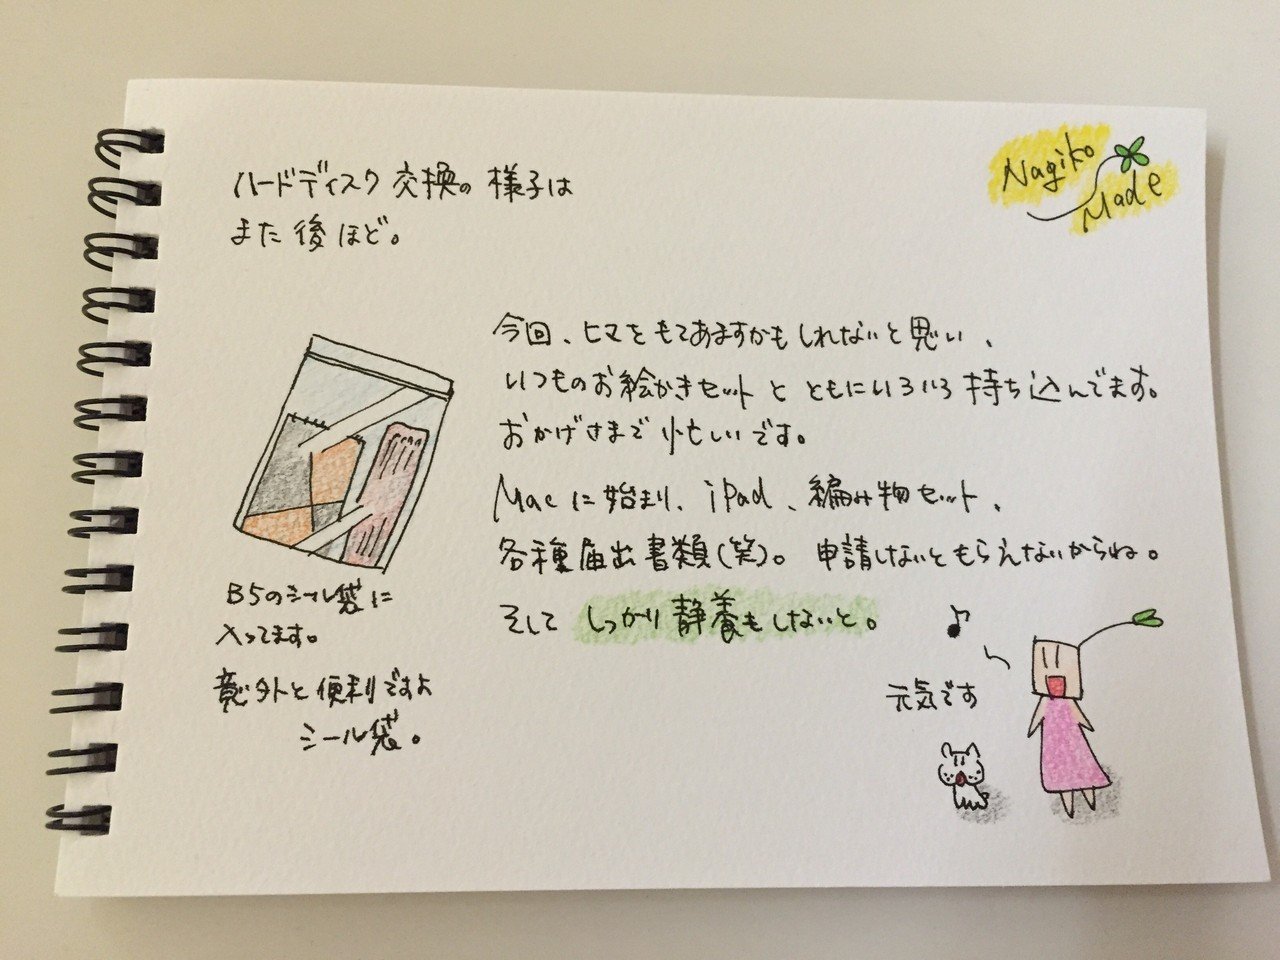 ハードディスク交換の様子は
また後ほど。
Nagiko
Made
今回、ヒマをもてあますかもしれないと思い、
いつものお絵かきセットとともにいろいろ持ち込んでます。
おかげさまで忙しいです。
Macに始まり、iPad、編み物セット、
各種届出書類(笑)。申請しないともらえないからね。
そしてしっかり静養もしないと。
B5のシール袋に
入ってます。
意外と便利ですよ
シール袋。
♪
元気です